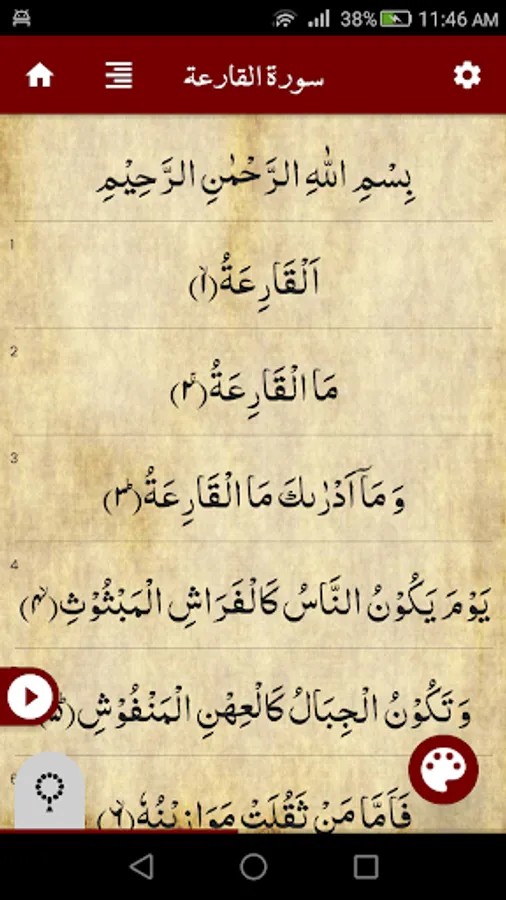 38% 11:46 AM
سورة القارعة
بِسْمِ اللهِ الرَّحْمٰنِ الرَّحِيْمِ
1
اَلْقَارِعَةُ(۱)ۙ
2
مَا الْقَارِعَةُ(۲)ۚ
3
وَ مَاۤ اَدْرٰىكَ مَا الْقَارِعَةُ(۳)ؕ
4
يَوْمَ يَكُوْنُ النَّاسُ كَالْفَرَاشِ الْمَبْثُوْثِ(۴)ۙ
وَ تَكُوْنُ الْجِبَالُ كَالْعِهْنِ الْمَنْفُوْشِ(۵)ؕ
6
فَاَمَّا مَنْ ثَقُلَتْ مَوَازِيْنُهٗ(۶)ۙ